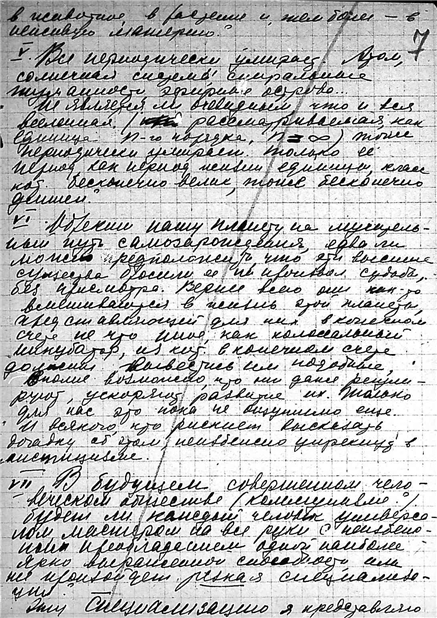 в животное, в растение и, тем более – в
неживую материю?
7
V Все периодически умирает. Атом,
солнечная система, спиральные
туманности, эфирные острова...
Не является ли очевидным, что и вся
вселенная (рассматриваемая как
единица n-го порядка, n=∞) тоже
периодически умирает, только её
период, как период жизни единицы, класс
кот. бесконечно велик, тоже бесконечно
длинен?
VI Обрекши нашу планету на мучитель-
ный путь самозарождения, едва ли
можно предположить, что эти высшие
существа бросили её на произвол судьбы,
без присмотра. Верней всего они как-то
вмешиваются в жизнь этой планеты,
представляющей для них в конечном
счете не что иное, как колоссальный
инкубатор, из кот. в конечном счете
должны вывестись им подобные.
Вполне возможно, что они даже регули-
руют, ускоряют развитие их. Только
для нас это пока не ощутимо еще.
И всякого, кто рискнет высказать
догадку об этом, неизбежно упрекнут в
мистицизме.
VII В будущем совершенном чело-
веческом обществе (коммунизме?)
будет ли каждый человек универса-
лом, мастером на все руки с
преобладанием одной наиболее
ярко выраженной способности или
же произойдет резкая специализа-
ция?
Эту специализацию я представляю